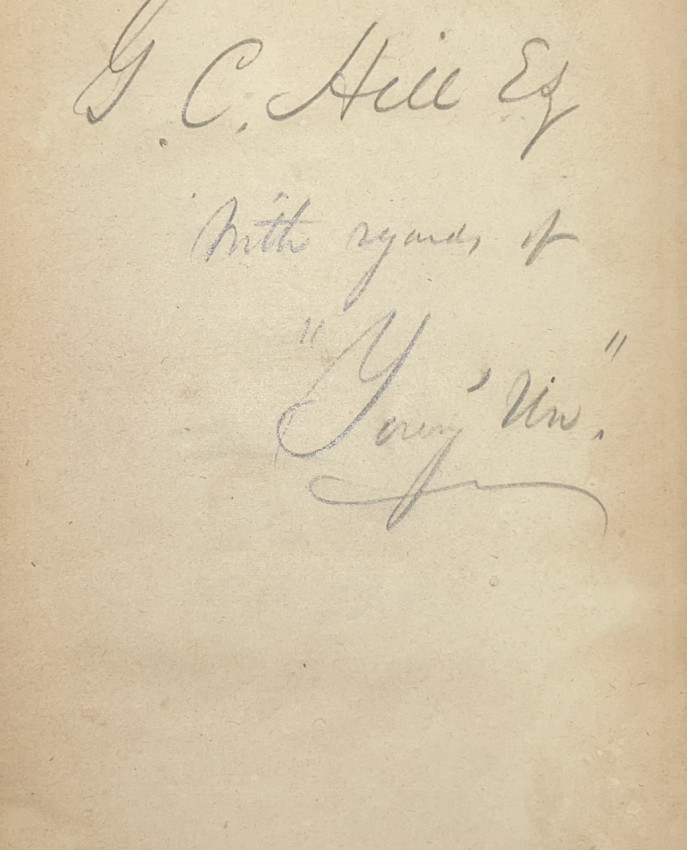 G. C. Hill Esq
With regards of
"Young 'Un."